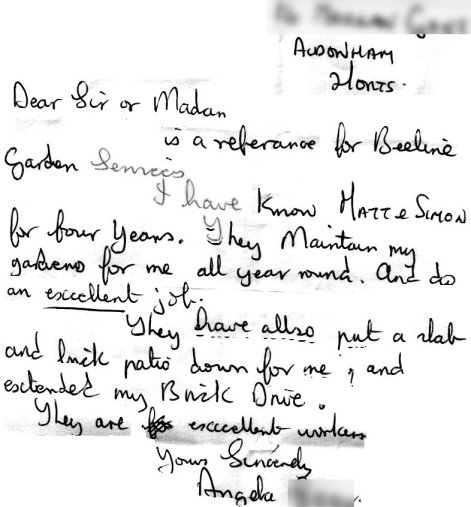 ALDONHAM
HONTS.
Dear Sir or Madan
is a referance for Beeline
Garden Services
I have Know MATT & SIMON
for four years. They Maintain my
gardens for me all year round. And do
an excellent job.
They have allso put a slab
and brick patio down for me, and
esctended my Brick Drive.
They are esccellent workers
Yours Sincerely
Angela